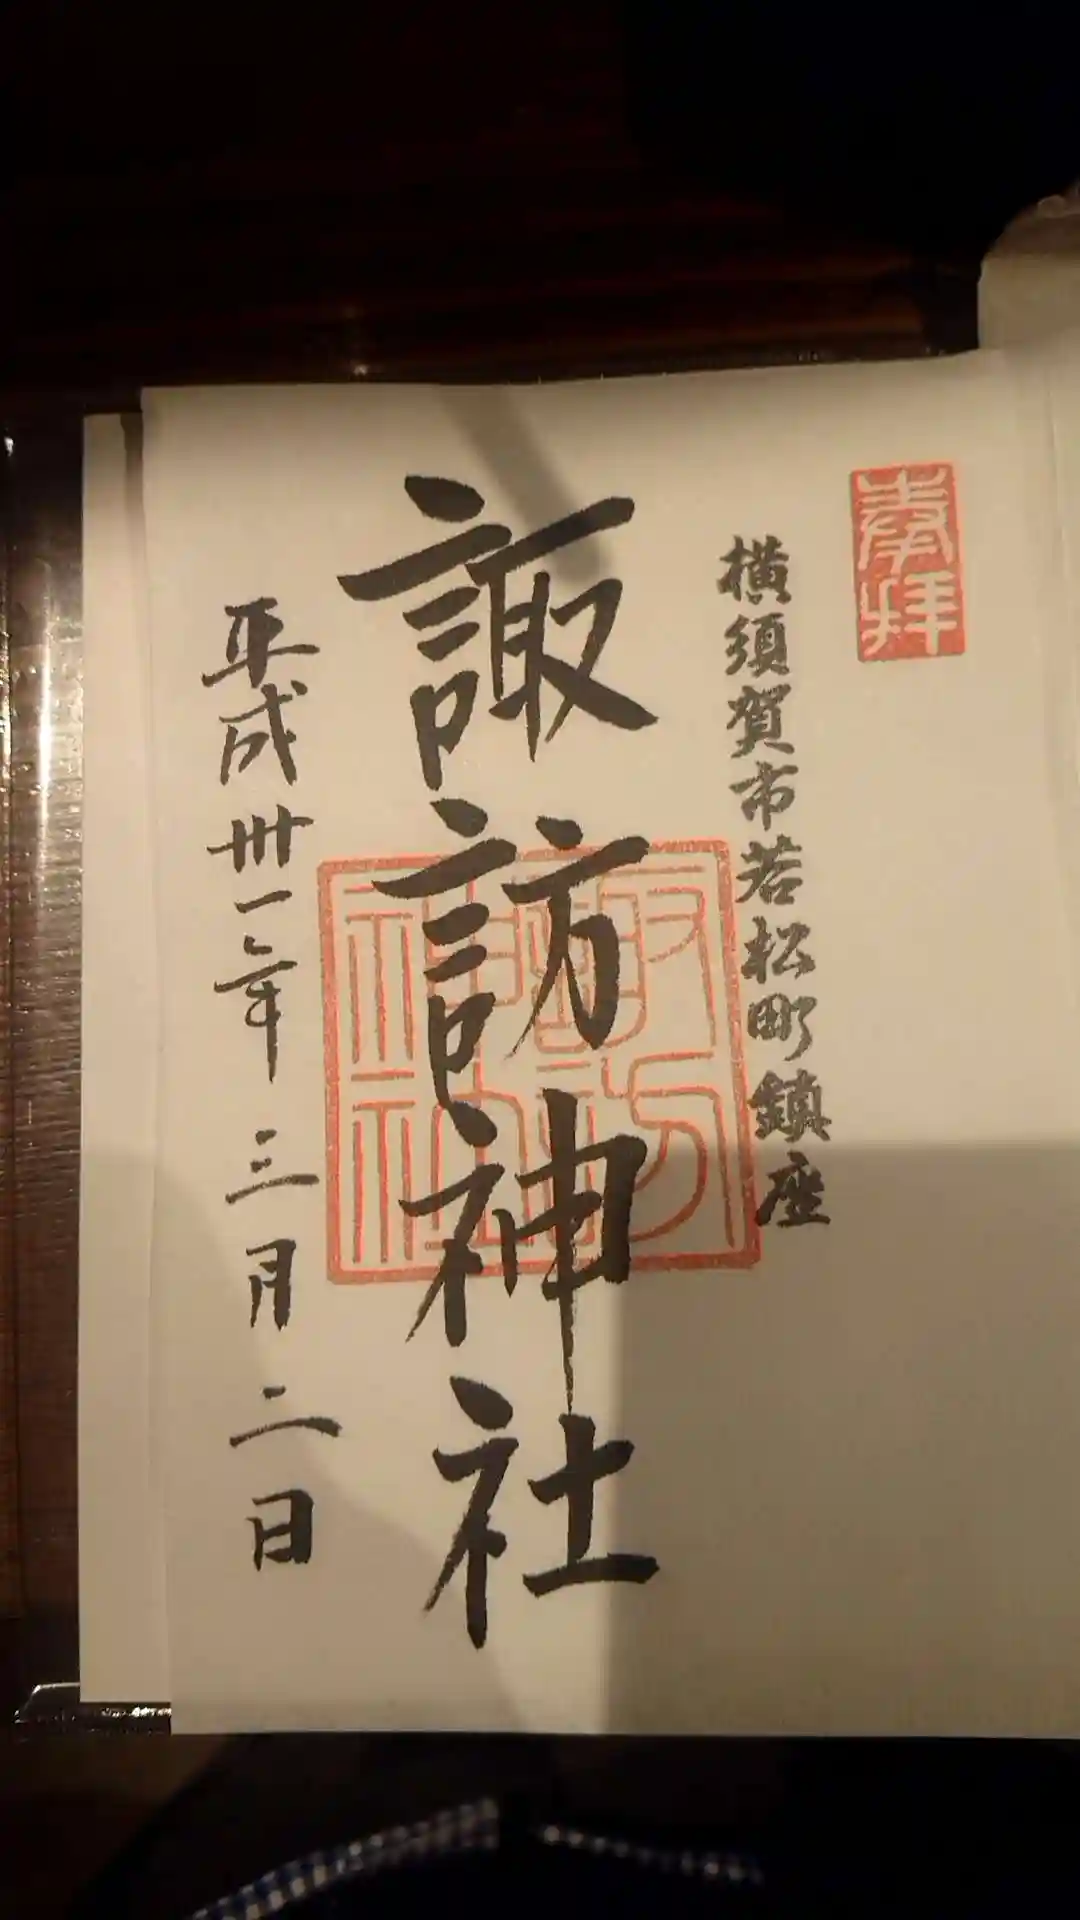 奉拝
横須賀市若松町鎮座
諏訪神社
諏訪神社
平成卅一年三月二日